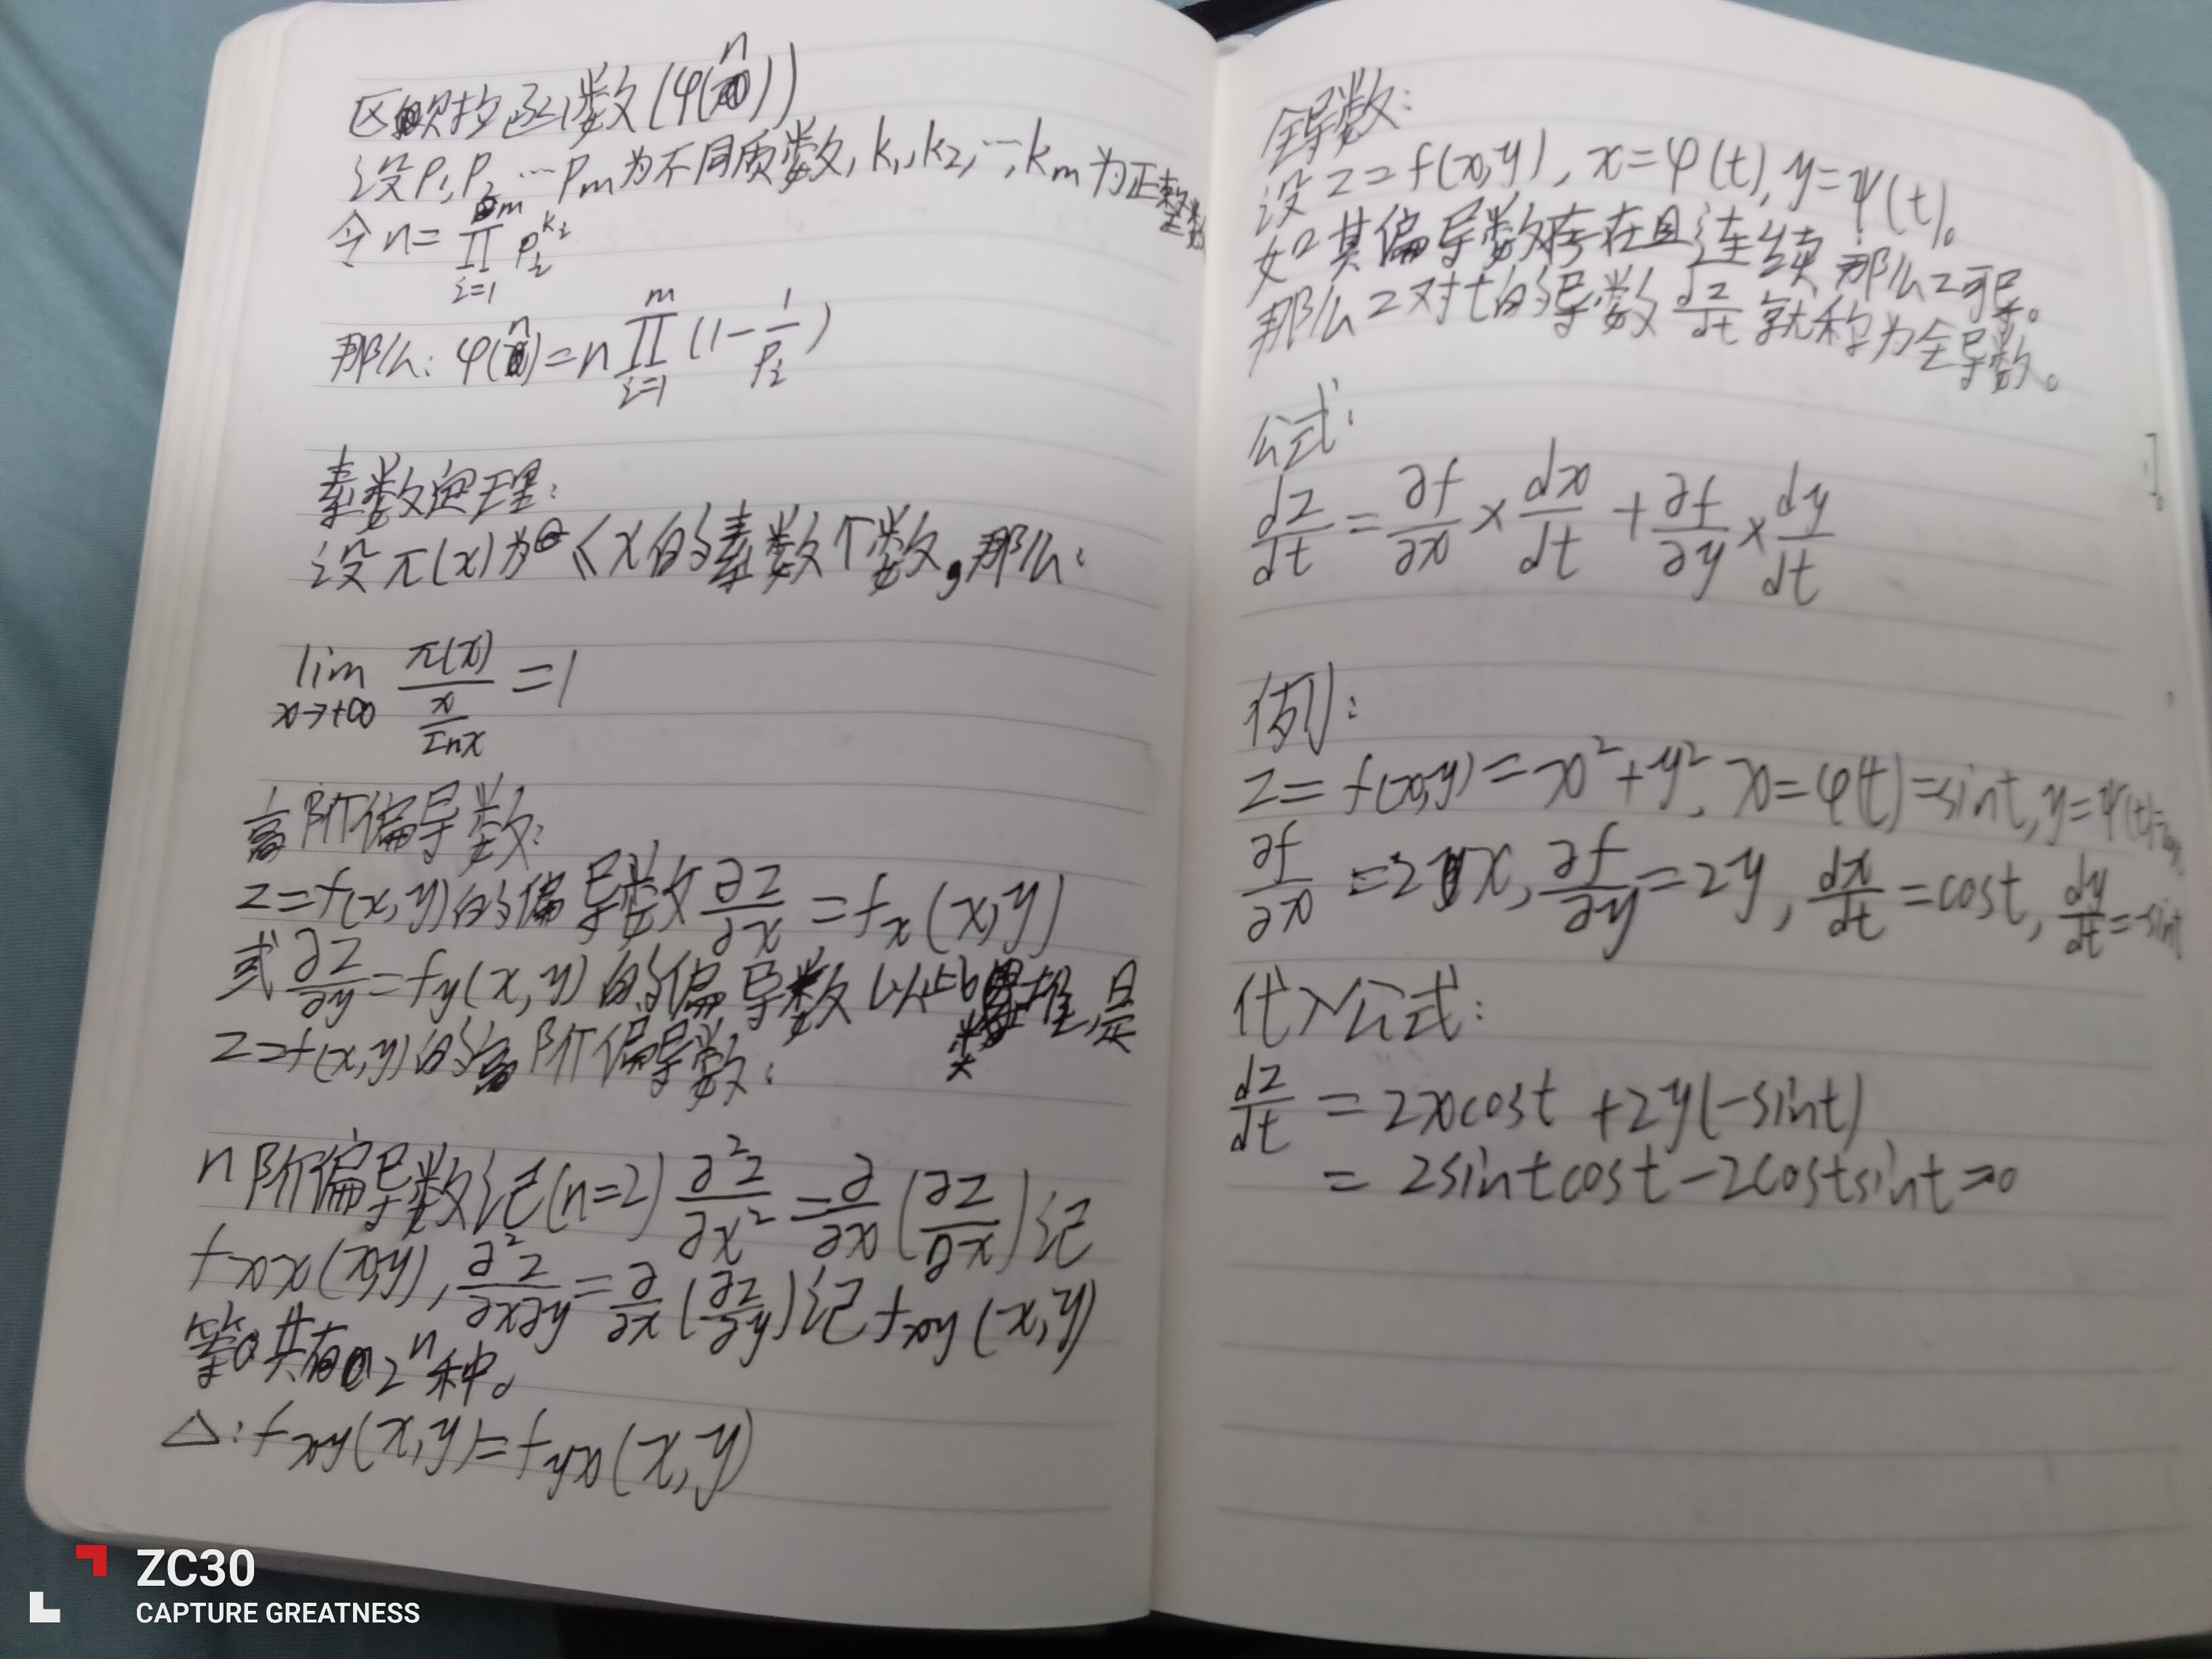 区欧拉函数(φ(n))
设P₁,P₂…Pm为不同质数,k₁,k₂,…,km为正整数
令n=∏(i=1→m) Pᵢ^kᵢ
那么:φ(n)=n∏(i=1→m)(1-1/Pᵢ)
素数定理:
设π(x)为≤x的素数个数,那么:
lim(x→+∞) π(x)/(x/lnx)=1
高阶偏导数:
z=f(x,y)的偏导数∂z/∂x=fx(x,y)
或∂z/∂y=fy(x,y)的偏导数以此类推,是
z=f(x,y)的高阶偏导数:
n阶偏导数记(n=2)∂²z/∂x²=∂/∂x(∂z/∂x)记
fxx(x,y),∂²z/∂x∂y=∂/∂x(∂z/∂y)记fxy(x,y)
等。共有2ⁿ种。
△:fxy(x,y)=fyx(x,y)
全导数:
设z=f(x,y),x=φ(t),y=ψ(t)。
如其偏导数存在且连续那么z可导。
那么z对t的导数dz/dt就称为全导数。
公式:
dz/dt=∂f/∂x×dx/dt+∂f/∂y×dy/dt
例:
z=f(x,y)=x²+y²,x=φ(t)=sint,y=ψ(t)=cos
∂f/∂x=2x,∂f/∂y=2y,dx/dt=cost,dy/dt=-sint
代入公式:
dz/dt=2xcost+2y(-sint)
=2sintcost-2costsint=0
ZC30
CAPTURE GREATNESS